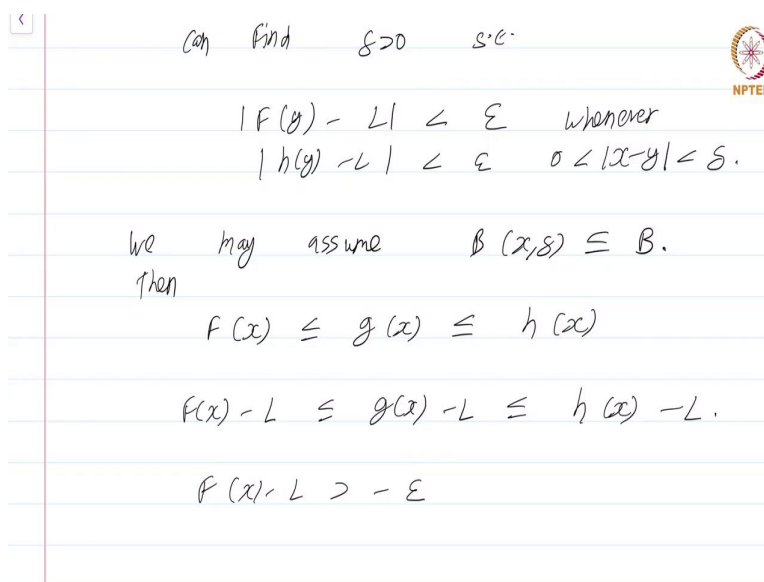 can find δ>0 s.t.
|F(y) - L| < ε whenever
|h(y) - L| < ε 0 < |x-y| < δ.
We may assume B(x,δ) ⊆ B.
Then
F(x) ≤ g(x) ≤ h(x)
F(x) - L ≤ g(x) - L ≤ h(x) - L.
F(x) - L > - ε
NPTEL